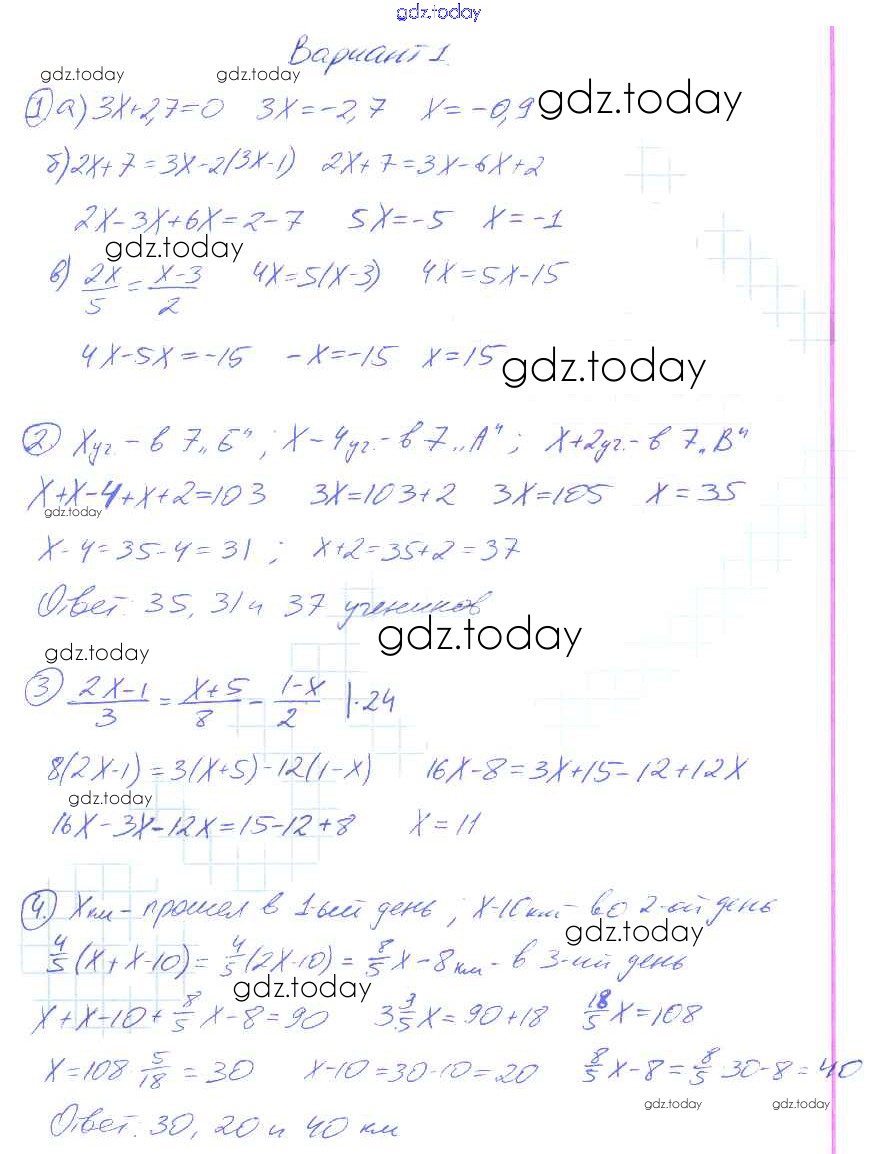 gdz.today
Вариант 1.
gdz.today gdz.today
① а) 3x+2,7=0 3x=-2,7 x=-0,9 gdz.today
б) 2x+7=3x-2(3x-1) 2x+7=3x-6x+2
2x-3x+6x=2-7 5x=-5 x=-1
gdz.today
в) 2x/5=(x-3)/2 4x=5(x-3) 4x=5x-15
4x-5x=-15 -x=-15 x=15 gdz.today
② x уч. - в 7 „Б“; x-4 уч. - в 7 „А“; x+2 уч. - в 7 „В“
x+x-4+x+2=103 3x=103+2 3x=105 x=35
gdz.today
x-4=35-4=31; x+2=35+2=37
Ответ: 35, 31 и 37 учеников
gdz.today
gdz.today
③ (2x-1)/3=(x+5)/8-(1-x)/2 |·24
8(2x-1)=3(x+5)-12(1-x) 16x-8=3x+15-12+12x
gdz.today
16x-3x-12x=15-12+8 x=11
④. x км - прошел в 1-ый день; x-10 км - во 2-ой день
gdz.today
4/5(x+x-10)=4/5(2x-10)=8/5x-8 км - в 3-ий день
gdz.today
x+x-10+8/5x-8=90 3 3/5x=90+18 18/5x=108
x=108·5/18=30 x-10=30-10=20 8/5x-8=8/5·30-8=40
gdz.today gdz.today
Ответ: 30, 20 и 40 км